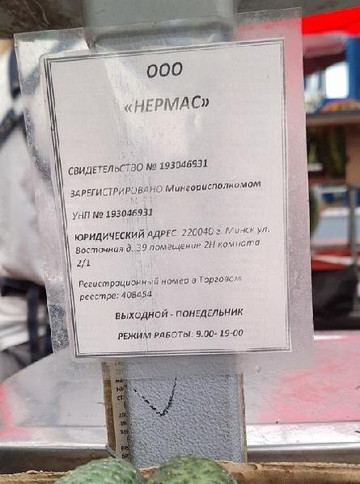 ООО
«НЕРМАС»
СВИДЕТЕЛЬСТВО № 193046931
ЗАРЕГИСТРИРОВАНО Мингорисполкомом
УНП № 193046931
ЮРИДИЧЕСКИЙ АДРЕС: 220040 г. Минск ул.
Восточная д. 39 помещение 2Н комната
2/1
Регистрационный номер в Торговом
реестре: 408454
ВЫХОДНОЙ - ПОНЕДЕЛЬНИК
РЕЖИМ РАБОТЫ: 9.00- 19-00